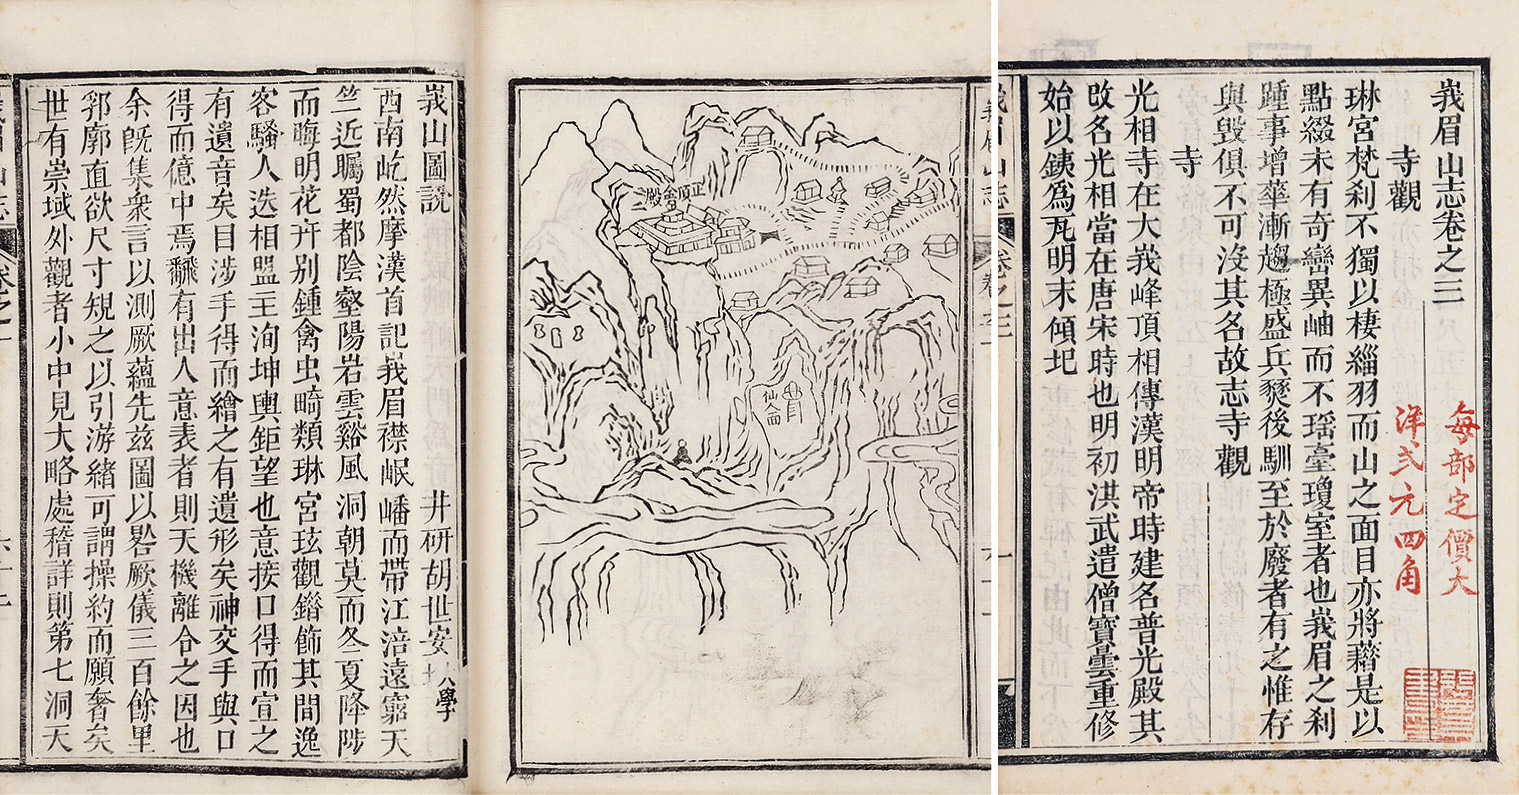 峩眉山志卷之三
每部定價大
洋弍元四角
寺觀
琳宮梵刹不獨以棲緇羽而山之面目亦將藉是以
點綴未有奇巒異岫而不瑶臺瓊室者也峩眉之刹
踵事增華漸趨極盛兵燹後馴至於廢者有之惟存
與毀俱不可沒其名故志寺觀
寺
光相寺在大峩峰頂相傳漢明帝時建名普光殿其
改名光相當在唐宋時也明初洪武遣僧寶曇重修
始以銕爲瓦明末傾圮
峩眉山志
正頂金殿
峩山圖說
井研胡世安
學
西南屹然摩漢首記峩眉襟岷嶓而帶江涪遠窺天
竺近矚蜀都陰壑陽岩雲谿風洞朝莫而冬夏降陟
而晦明花卉别鍾禽虫畸類琳宮玹觀鐕飾其間逸
客騷人迭相盟主洵坤輿鉅望也意接口得而宣之
有遺音矣目涉手得而繪之有遺形矣神交手與口
得而億中焉飜有出人意表者則天機離合之因也
余旣集衆言以測厥藴先兹圖以畧厥儀三百餘里
郛廓直欲尺寸䂓之以引游緒可謂操約而願奢矣
世有崇域外觀者小中見大略處稽詳則第七洞天